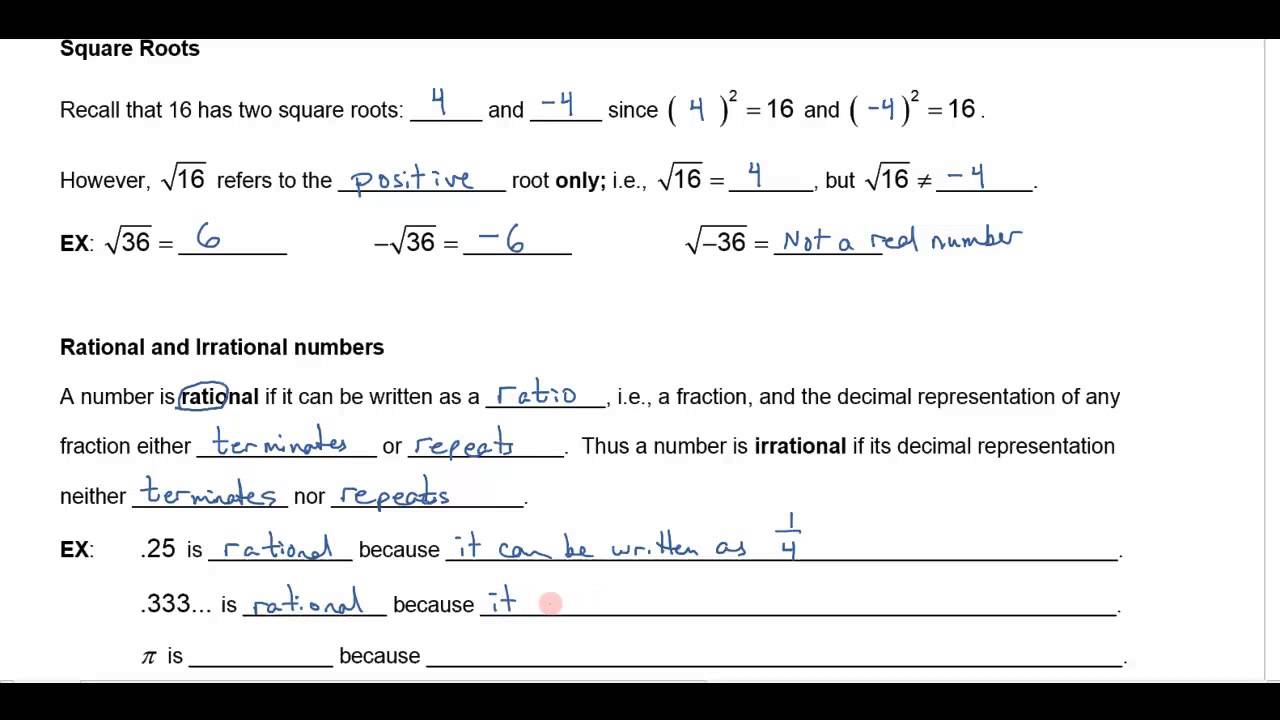 Square Roots
Recall that 16 has two square roots: 4 and -4 since ( 4 )² = 16 and ( -4 )² = 16 .
However, √16 refers to the positive root only; i.e., √16 = 4 , but √16 ≠ -4 .
EX: √36 = 6 -√36 = -6 √-36 = Not a real number
Rational and Irrational numbers
A number is rational if it can be written as a ratio , i.e., a fraction, and the decimal representation of any
fraction either terminates or repeats . Thus a number is irrational if its decimal representation
neither terminates nor repeats .
EX: .25 is rational because it can be written as 1/4 .
.333... is rational because it .
π is ____ because ____ .